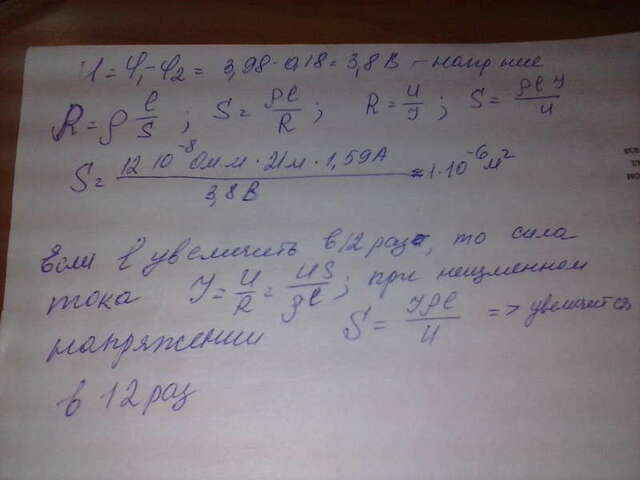 U = φ₁ - φ₂ = 3,98 - 0,18 = 3,8 В - напр-ние
R = ρ l/S ; S = ρl/R ; R = U/J ; S = ρl J/U
S = 12·10⁻⁸ Ом м · 21 м · 1,59 А / 3,8 В ≈ 1·10⁻⁶ м²
Если l увеличить в 12 раз, то сила
тока J = U/R = US/ρl ; при неизменном
напряжении S = Jρl/U => увеличется
в 12 раз